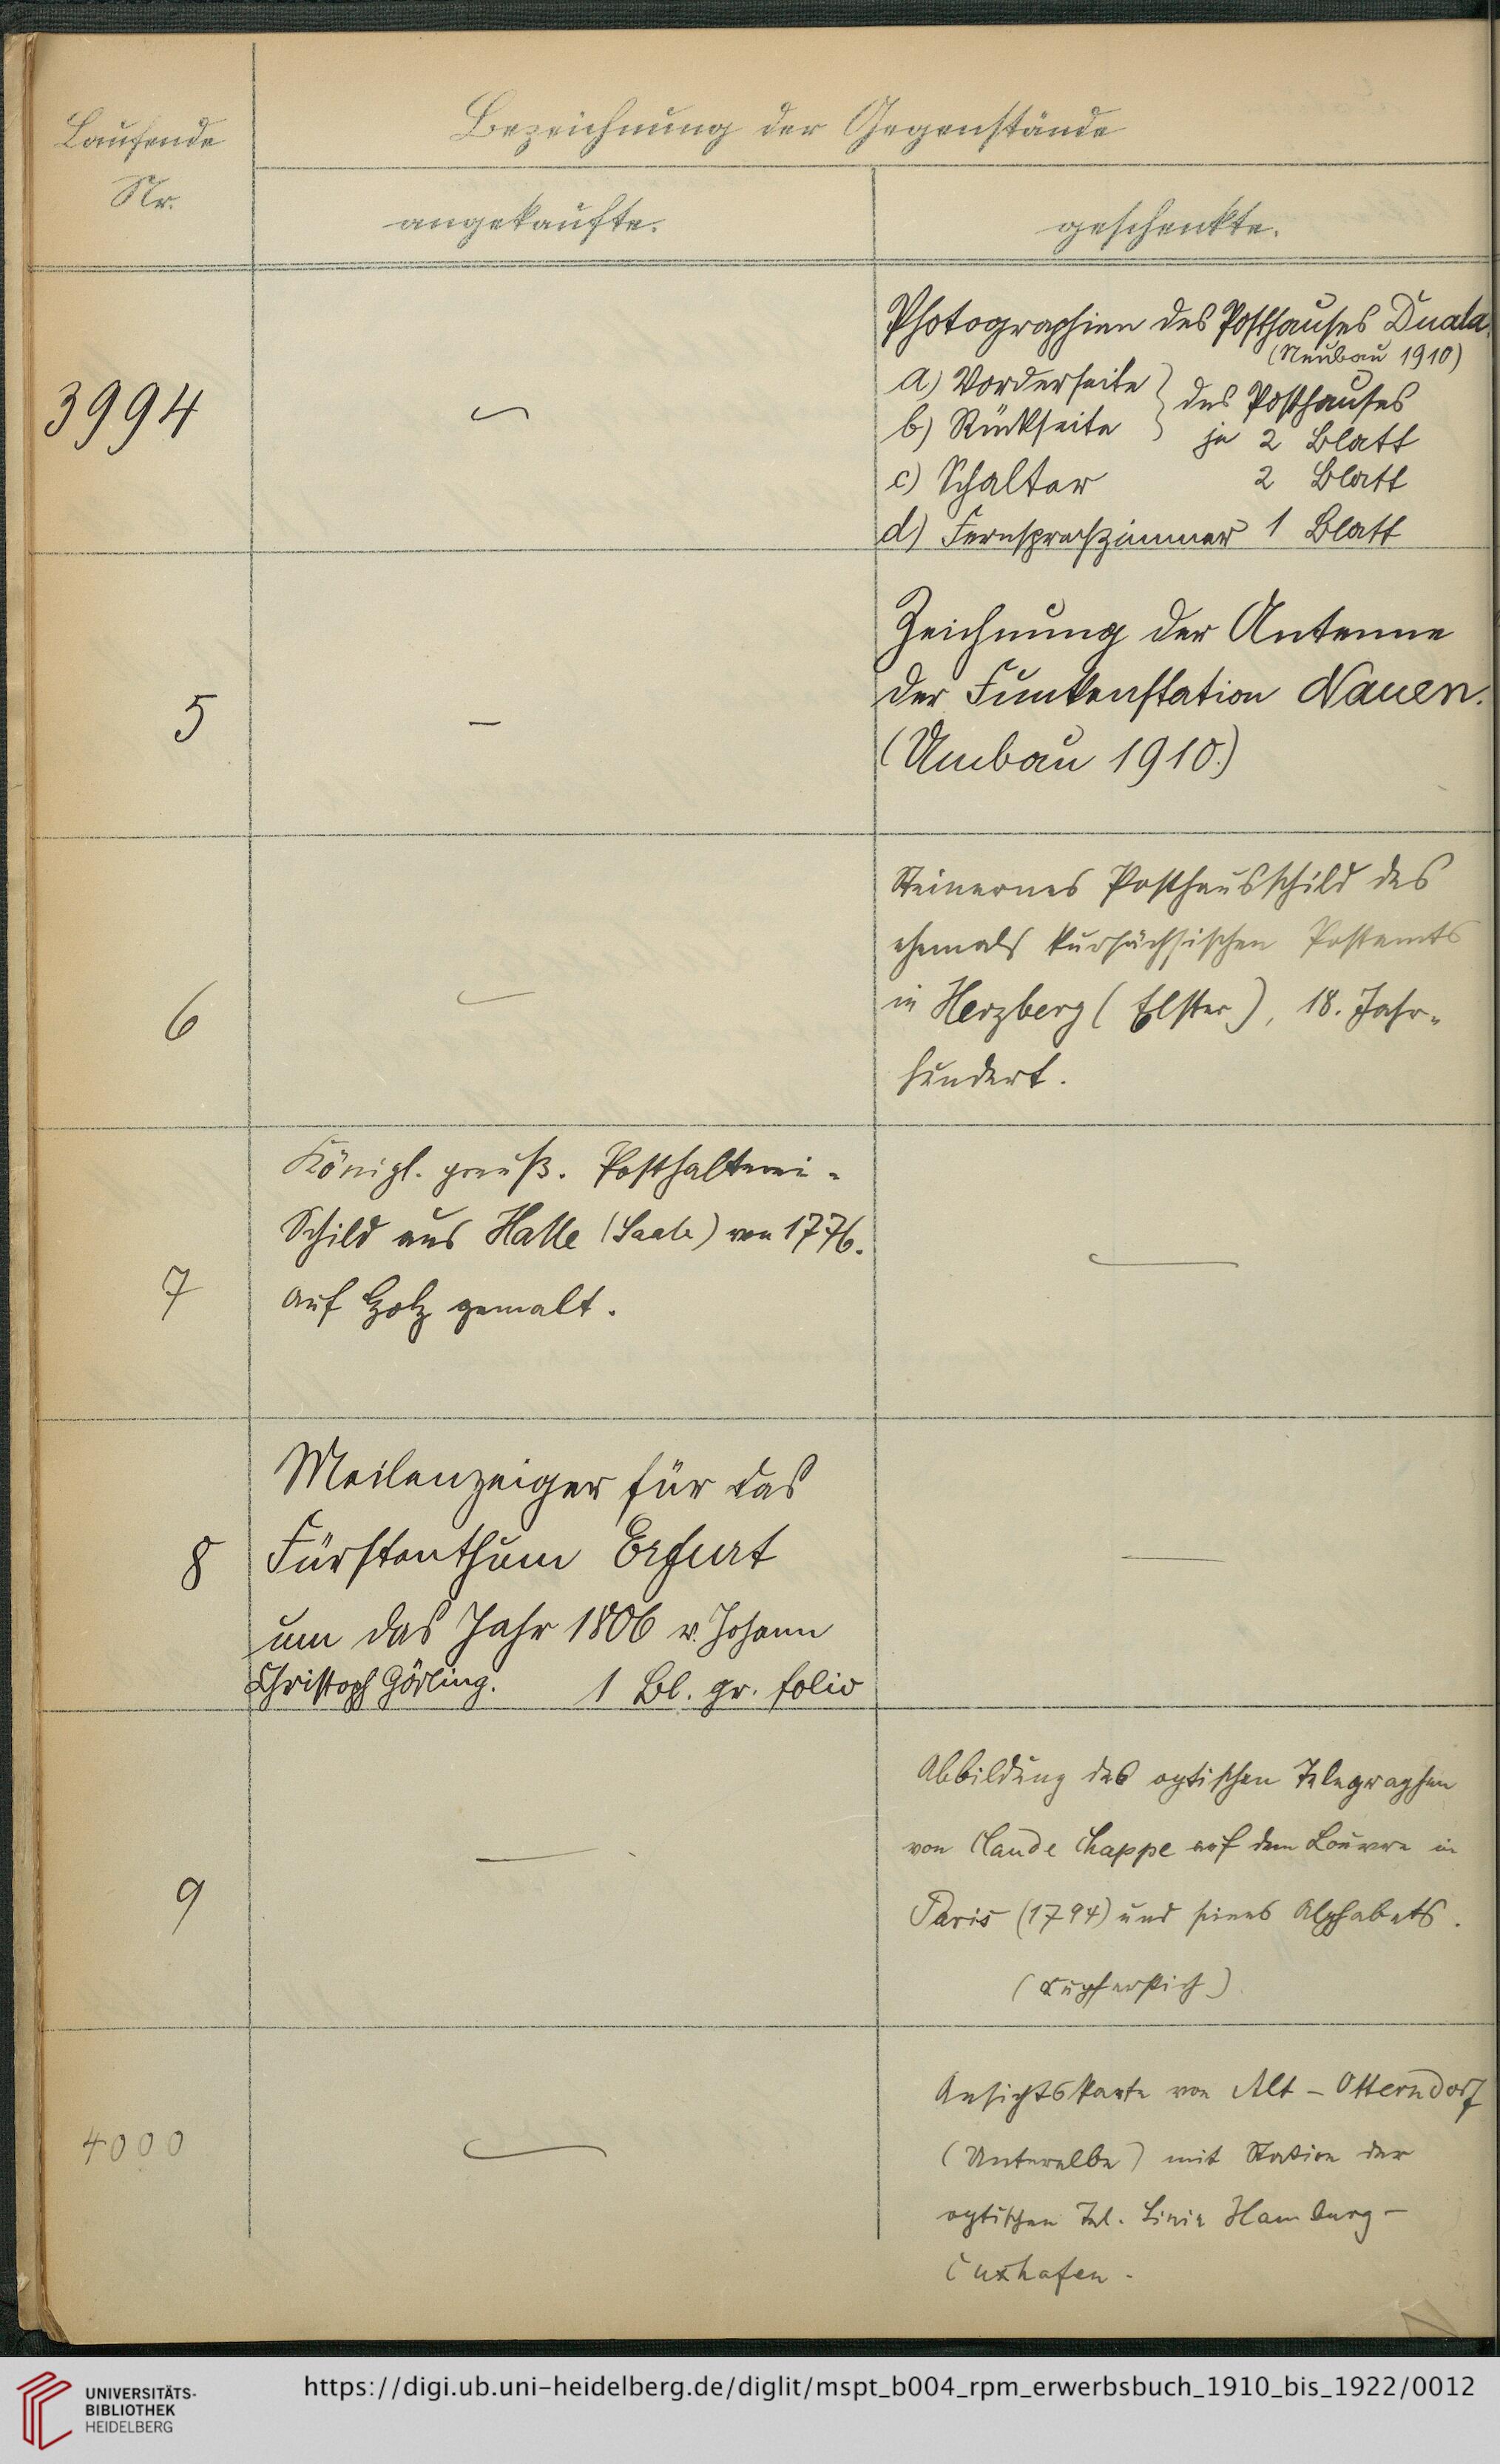 Laufende
Nr.
Bezeichnung der Gegenstände
angekaufte.
geschenkte.
3994
Photographien des Posthauses Duala.
(Neubau 1910)
a) Vorderseite
b) Rückseite
des Posthauses
je 2 Blatt
c) Schalter 2 Blatt
d) Fernsprechzimmer 1 Blatt
5
—
Zeichnung der Antenne
der Funkenstation Nauen.
(Umbau 1910.)
6
—
Steinernes Posthausschild des
ehemals kursächsischen Postamts
in Herzberg (Elster), 18. Jahr-
hundert.
7
Königl. preuß. Posthalterei-
Schild aus Halle (Saale) von 1776.
auf Holz gemalt.
—
8
Meilenzeiger für das
Fürstenthum Erfurt
um das Jahr 1806 v. Johann
Christoph Görling. 1 Bl. gr. folio
—
9
—
Abbildung des optischen Telegraphen
von Claude Chappe auf dem Louvre in
Paris (1794) und seines Alphabets.
(Kupferstich)
4000
—
Ansichtskarte von Alt-Otterndorf
(Unterelbe) mit Station der
optischen Tel. Linie Hamburg-
Cuxhafen.
UNIVERSITÄTS-
BIBLIOTHEK
HEIDELBERG
https://digi.ub.uni-heidelberg.de/diglit/mspt_b004_rpm_erwerbsbuch_1910_bis_1922/0012